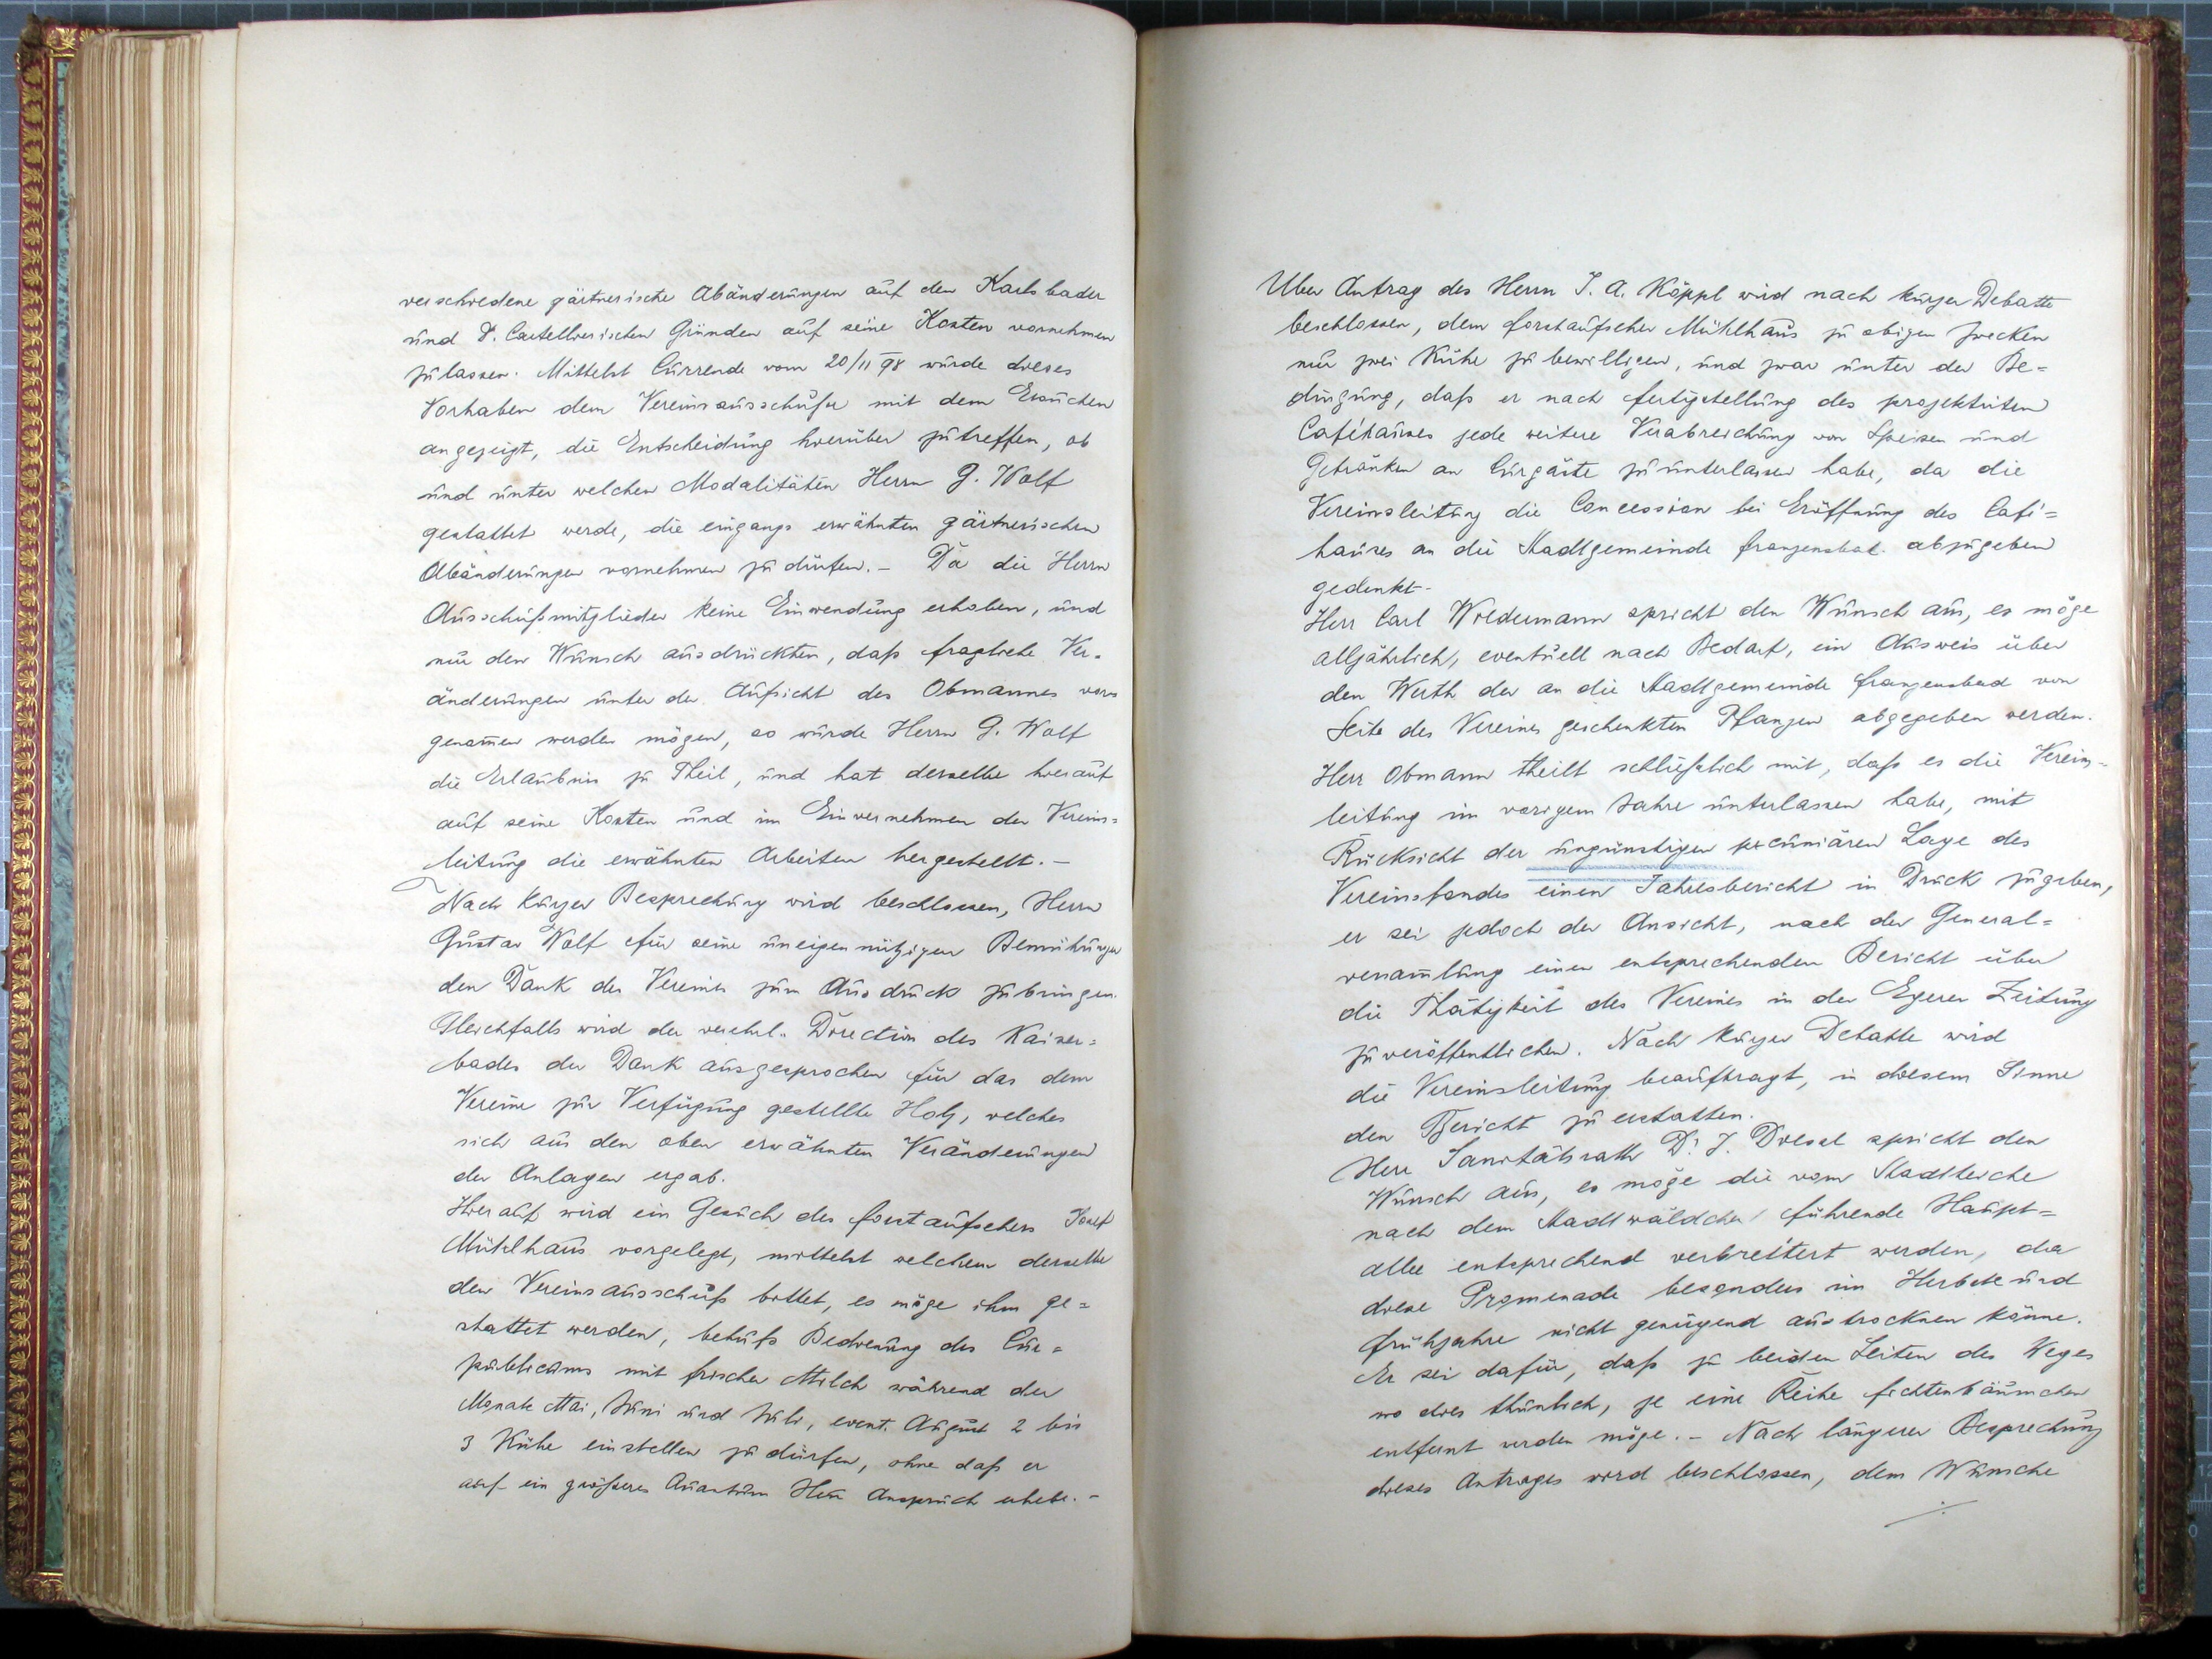 verschiedene gärtnerische Abänderungen auf den Karlsbader
und D. Cartellierischen Gründen auf seine Kosten vornehmen
zu lassen. Mittelst Currende vom 20/11 98 wurde dieses
Vorhaben dem Vereinsausschuße mit dem Ersuchen
angezeigt, die Entscheidung hierüber zu treffen, ob
und unter welchen Modalitäten Herrn G. Wolf
gestattet werde, die eingangs erwähnten gärtnerischen
Abänderungen vornehmen zu dürfen. – Da die Herrn
Ausschußmitglieder keine Einwendung erhoben, und
nur den Wunsch ausdrückten, daß fragliche Ver-
änderungen unter der Aufsicht des Obmannes vor-
genom̅en werden mögen, so wurde Herrn G. Wolf
die Erlaubnis zu Theil, und hat derselbe hierauf
auf seine Kosten und im Einvernehmen der Vereins=
leitung die erwähnten Arbeiten hergestellt. –
Nach kurzer Besprechung wird beschlossen, Herrn
Gustav Wolf für seine uneigennützigen Bemühungen
den Dank des Vereines zum Ausdruck zu bringen.
Gleichfalls wird der verehrl. Direction des Kaiser=
bades der Dank ausgesprochen für das dem
Vereine zur Verfügung gestellte Holz, welches
sich aus den oben erwähnten Veränderungen
der Anlagen ergab.
Hierauf wird ein Gesuch des Forstaufsehers Josef
Mühlhaus vorgelegt, mittelst welchem derselbe
den Vereinsausschuß bittet, es möge ihm ge=
stattet werden, behufs Bedienung des Cur=
publicums mit frischer Milch während der
Monate Mai, Juni und Juli, event. August 2 bis
3 Kühe einstellen zu dürfen, ohne daß er
auf ein größeres Quantum Heu Anspruch erhebe. –
Uber Antrag des Herrn J. A. Köppl wird nach kurzer Debatte
beschlossen, dem Forstaufseher Mühlhaus zu obigen Zwecken
nur zwei Kühe zu bewilligen, und zwar unter der Be=
dingung, daß er nach Fertigstellung des projektirten
Caféhauses jede weitere Verabreichung von Speisen und
Getränken an Curgäste zu unterlassen habe, da die
Vereinsleitung die Concession bei Eröffnung des Café=
hauses an die Stadtgemeinde Franzensbad abzugeben
gedenkt.
Herr Carl Wiedermann spricht den Wunsch aus, es möge
alljährlich, eventuell nach Bedarf, ein Ausweis über
den Werth der an die Stadtgemeinde Franzensbad von
Seite des Vereines geschenkten Pflanzen abgegeben werden.
Herr Obmann theilt schließlich mit, daß es die Vereins-
leitung im vorigem Jahre unterlassen habe, mit
Rücksicht der ungünstigen pecuniären Lage des
Vereinsfondes einen Jahresbericht in Druck zu geben,
er sei jedoch der Ansicht, nach der General=
versam̅lung einen entsprechenden Bericht über
die Thätigkeit des Vereines in der Egerer Zeitung
zu veröffentlichen. Nach kurzer Debatte wird
die Vereinsleitung beauftragt, in diesem Sinne
den Bericht zu erstatten.
Herr Sanitätsrath Dr. J. Diessl spricht den
Wunsch aus, es möge die vom Stadtteiche
nach dem Stadtwäldchen führende Haupt=
allee entsprechend verbreitert werden, da
diese Promenade besonders im Herbste und
Frühjahre nicht genügend austrocknen könne.
Er sei dafür, daß zu beiden Seiten des Weges
wo dies thunlich, je eine Reihe Fichtenbäumchen
entfernt werden möge. – Nach längerer Besprechung
dieses Antrages wird beschlossen, dem Wunsche
./.